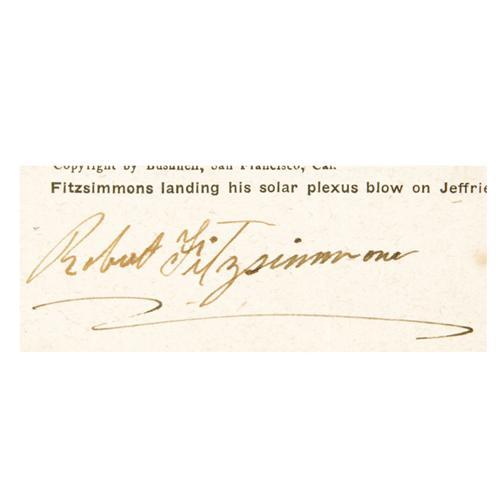 Copyright by Bushnell, San Francisco, Cal.
Fitzsimmons landing his solar plexus blow on Jeffrie
Robert Fitzsimmons